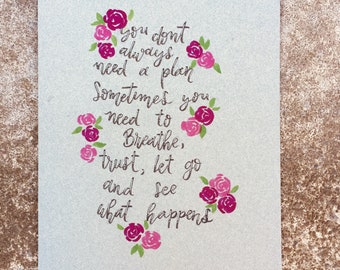 you dont
always
need a plan
Sometimes you
need to
Breathe,
trust, let go
and see
what happens